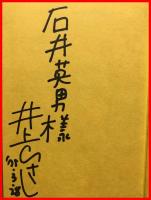 石井英男様
井上ひさし